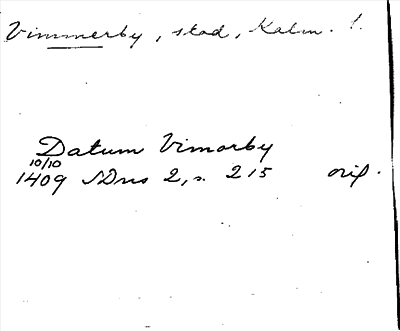 Vimmerby, stad, Kalm. l.
Datum Vimorby
10/10
1409 SDns 2, s. 215 orig.